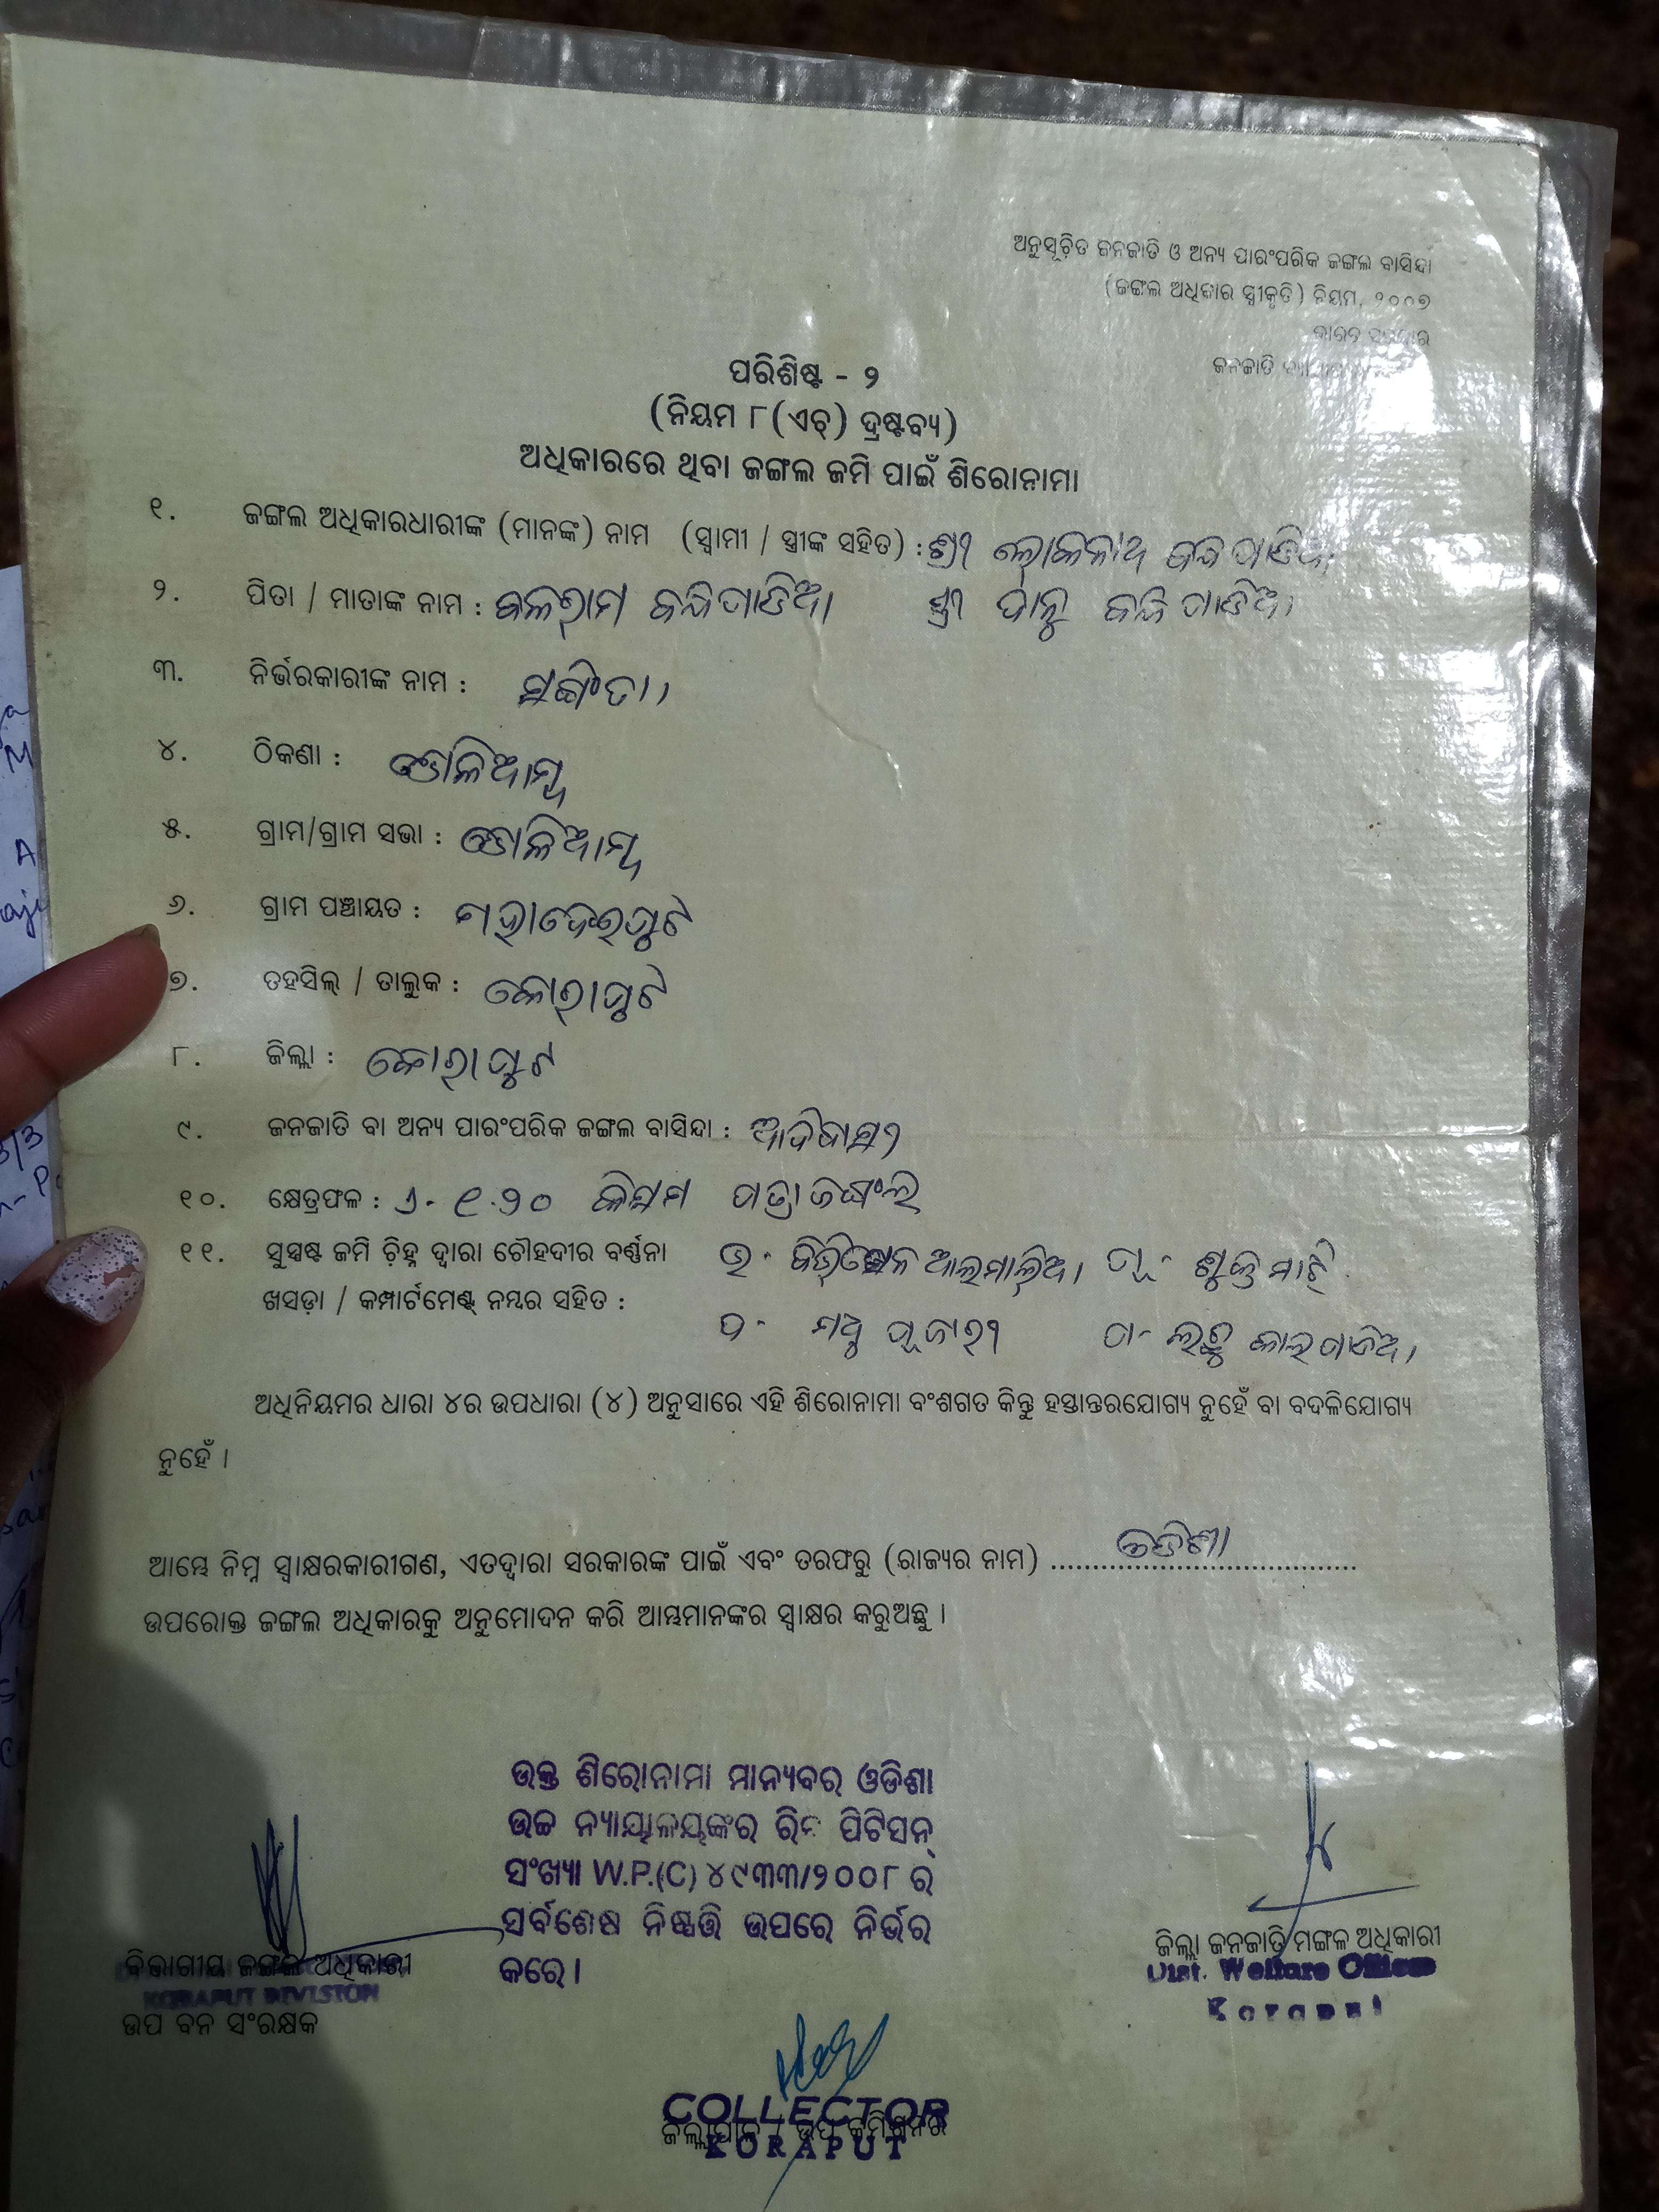 ଅନୁସୂଚିତ ଜନଜାତି ଓ ଅନ୍ୟ ପାରଂପରିକ ଜଙ୍ଗଲ ବାସିନ୍ଦା
(ଜଙ୍ଗଲ ଅଧିକାର ସ୍ବୀକୃତି) ନିୟମ, ୨୦୦୭
ଭାରତ ସରକାର
ଜନଜାତି
ପରିଶିଷ୍ଟ - ୨
(ନିୟମ ୮(ଏଚ୍) ଦ୍ରଷ୍ଟବ୍ୟ)
ଅଧିକାରରେ ଥିବା ଜଙ୍ଗଲ ଜମି ପାଇଁ ଶିରୋନାମା
୧. ଜଙ୍ଗଲ ଅଧିକାରଧାରୀଙ୍କ (ମାନଙ୍କ) ନାମ (ସ୍ୱାମୀ / ସ୍ତ୍ରୀଙ୍କ ସହିତ) : ଶ୍ରୀ ଲୋକନାଥ
୨. ପିତା / ମାତାଙ୍କ ନାମ : ବଳରାମ
୩. ନିର୍ଭରକାରୀଙ୍କ ନାମ :
୪. ଠିକଣା : ତେଲିଆମ୍ବ
୫. ଗ୍ରାମ/ଗ୍ରାମ ସଭା : ତେଲିଆମ୍ବ
୬. ଗ୍ରାମ ପଞ୍ଚାୟତ : ମହାଦେଇପୁଟ
୭. ତହସିଲ୍ / ତାଲୁକ : କୋରାପୁଟ
୮. ଜିଲ୍ଲା : କୋରାପୁଟ
୯. ଜନଜାତି ବା ଅନ୍ୟ ପାରଂପରିକ ଜଙ୍ଗଲ ବାସିନ୍ଦା : ଆଦିବାସୀ
୧୦. କ୍ଷେତ୍ରଫଳ : କିସମ ପତ୍ରା ଜଙ୍ଗଲ
୧୧. ସୁସ୍ପଷ୍ଟ ଜମି ଚିହ୍ନ ଦ୍ୱାରା ଚୌହଦୀର ବର୍ଣ୍ଣନା ଉ -
ଖସଡ଼ା / କମ୍ପାର୍ଟମେଣ୍ଟ୍ ନମ୍ବର ସହିତ : ଦ - ମଧୁ ପୂଜାରୀ
ଅଧିନିୟମର ଧାରା ୪ର ଉପଧାରା (୪) ଅନୁସାରେ ଏହି ଶିରୋନାମା ବଂଶଗତ କିନ୍ତୁ ହସ୍ତାନ୍ତରଯୋଗ୍ୟ ନୁହେଁ ବା ବଦଳିଯୋଗ୍ୟ
ନୁହେଁ ।
ଆମ୍ଭେ ନିମ୍ନ ସ୍ୱାକ୍ଷରକାରୀଗଣ, ଏତଦ୍ୱାରା ସରକାରଙ୍କ ପାଇଁ ଏବଂ ତରଫରୁ (ରାଜ୍ୟର ନାମ) ଓଡିଶା
ଉପରୋକ୍ତ ଜଙ୍ଗଲ ଅଧିକାରକୁ ଅନୁମୋଦନ କରି ଆମ୍ଭମାନଙ୍କର ସ୍ୱାକ୍ଷର କରୁଅଛୁ ।
ଉକ୍ତ ଶିରୋନାମା ମାନ୍ୟବର ଓଡିଶା
ଉଚ୍ଚ ନ୍ୟାୟାଳୟଙ୍କର ରିଟ ପିଟିସନ୍
ସଂଖ୍ୟା W.P.(C) ୪୯୩୩/୨୦୦୮ ର
ସର୍ବଶେଷ ନିଷ୍ପତ୍ତି ଉପରେ ନିର୍ଭର
କରେ ।
ବିଭାଗୀୟ ଜଙ୍ଗଲ ଅଧିକାରୀ
KORAPUT DIVISION
ଉପ ବନ ସଂରକ୍ଷକ
ଜିଲ୍ଲା ଜନଜାତି ମଙ୍ଗଳ ଅଧିକାରୀ
Dist. Welfare Officer
Koraput
COLLECTOR
ଜିଲ୍ଲାପାଳ / ଉପ କମିଶନର
KORAPUT